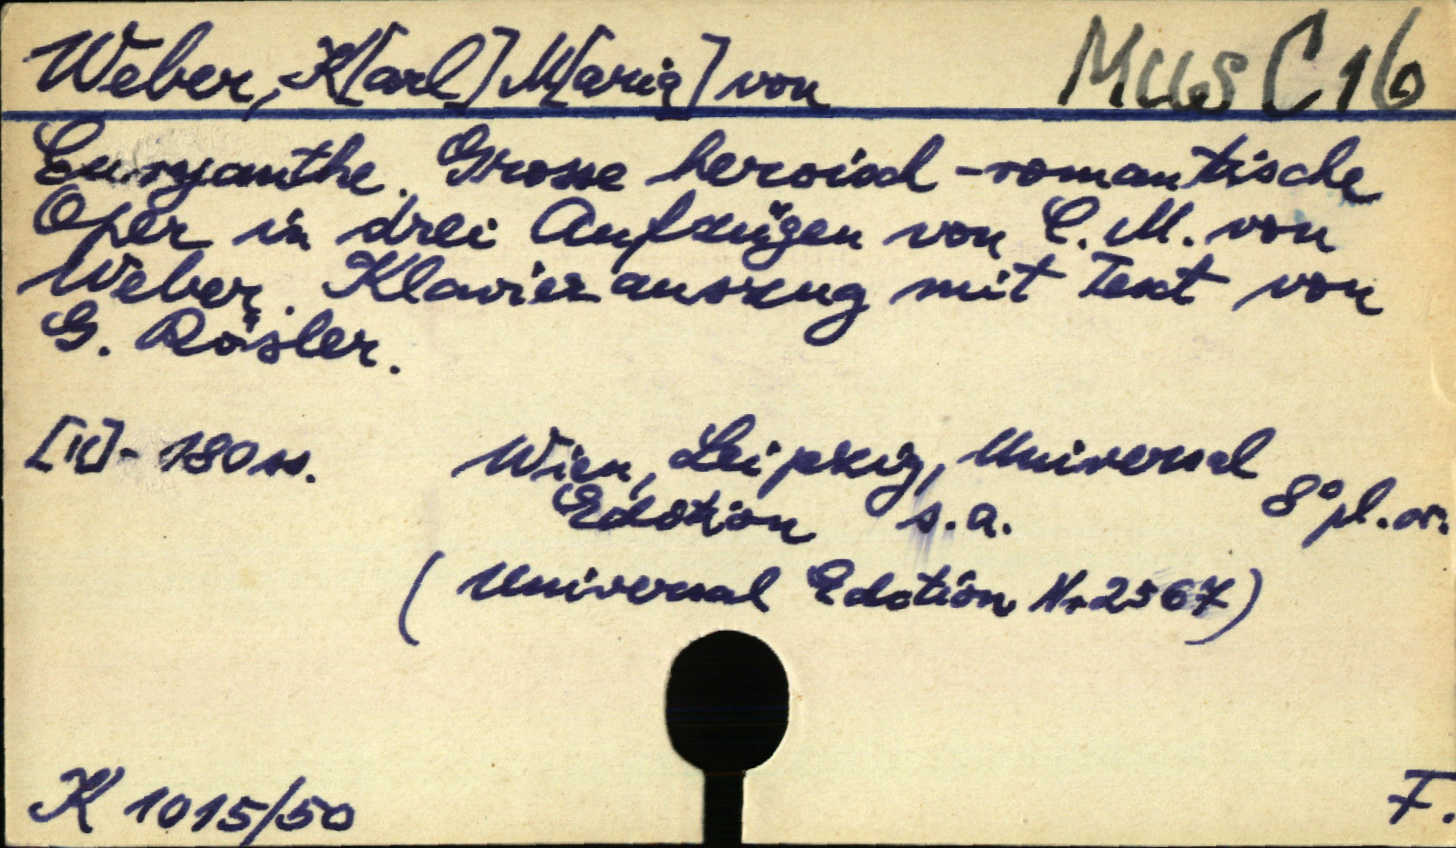 Weber, K[arl] M[aria] von MUS C 16
Euryanthe. Grosse heroisch-romantische
Oper in drei Aufzügen von C. M. von
Weber. Klavierauszug mit Text von
G. Rösler.
[II]-180 ss. Wien, Leipzig, Universal
Edition s.a. 8° pl. or.
(Universal Edition Nr 2567)
K 1015/50 F.